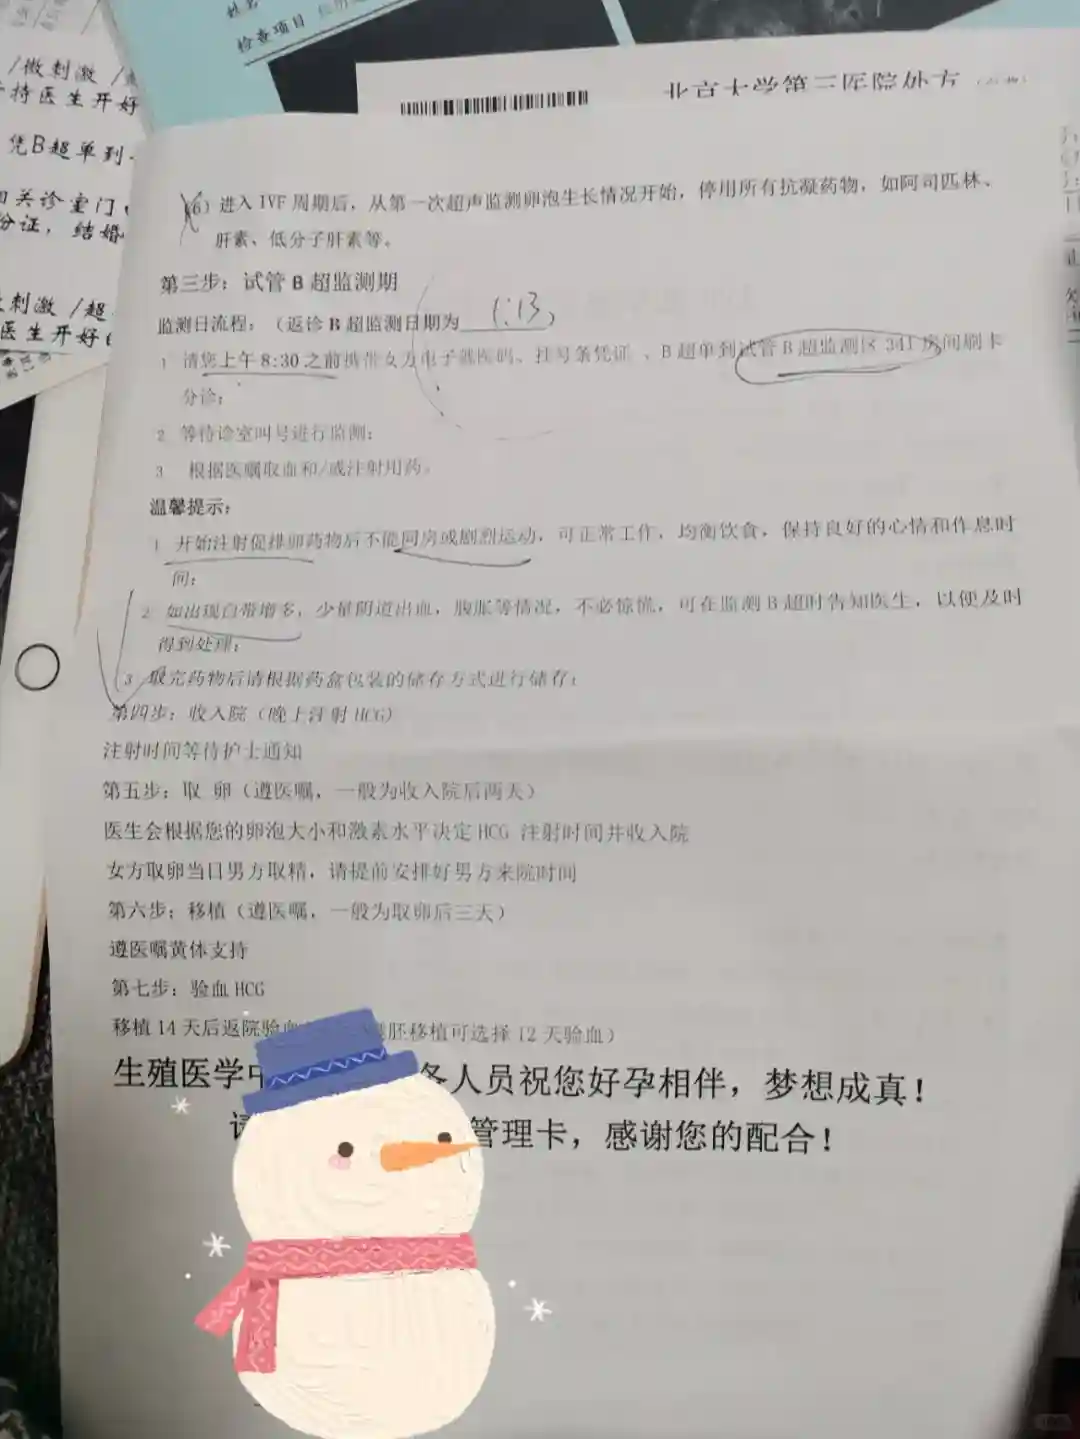 姓名
检查项目
/微刺激 /
持医生开好
凭B超单到
关诊室门
份证，结婚
刺激 /超
医生开好
北京大学第三医院处方
6）进入 IVF 周期后，从第一次超声监测卵泡生长情况开始，停用所有抗凝药物，如阿司匹林、
肝素、低分子肝素等。
第三步：试管 B 超监测期
监测日流程：（返诊 B 超监测日期为 1.13）
1 请您上午 8:30 之前携带女方电子就医码、挂号条凭证 、B 超单到试管 B 超监测区 341 房间刷卡
分诊；
2 等待诊室叫号进行监测；
3 根据医嘱取血和/或注射用药。
温馨提示：
1 开始注射促排卵药物后不能同房或剧烈运动，可正常工作，均衡饮食，保持良好的心情和作息时
间；
2 如出现白带增多，少量阴道出血，腹胀等情况，不必惊慌，可在监测 B 超时告知医生，以便及时
得到处理；
3 取完药物后请根据药盒包装的储存方式进行储存；
第四步：收入院（晚上注射 HCG）
注射时间等待护士通知
第五步：取 卵（遵医嘱，一般为收入院后两天）
医生会根据您的卵泡大小和激素水平决定 HCG 注射时间并收入院
女方取卵当日男方取精，请提前安排好男方来院时间
第六步：移植（遵医嘱，一般为取卵后三天）
遵医嘱黄体支持
第七步：验血 HCG
移植 14 天后返院验血 胚移植可选择 12 天验血）
生殖医学中 务人员祝您好孕相伴，梦想成真！
请 管理卡，感谢您的配合！